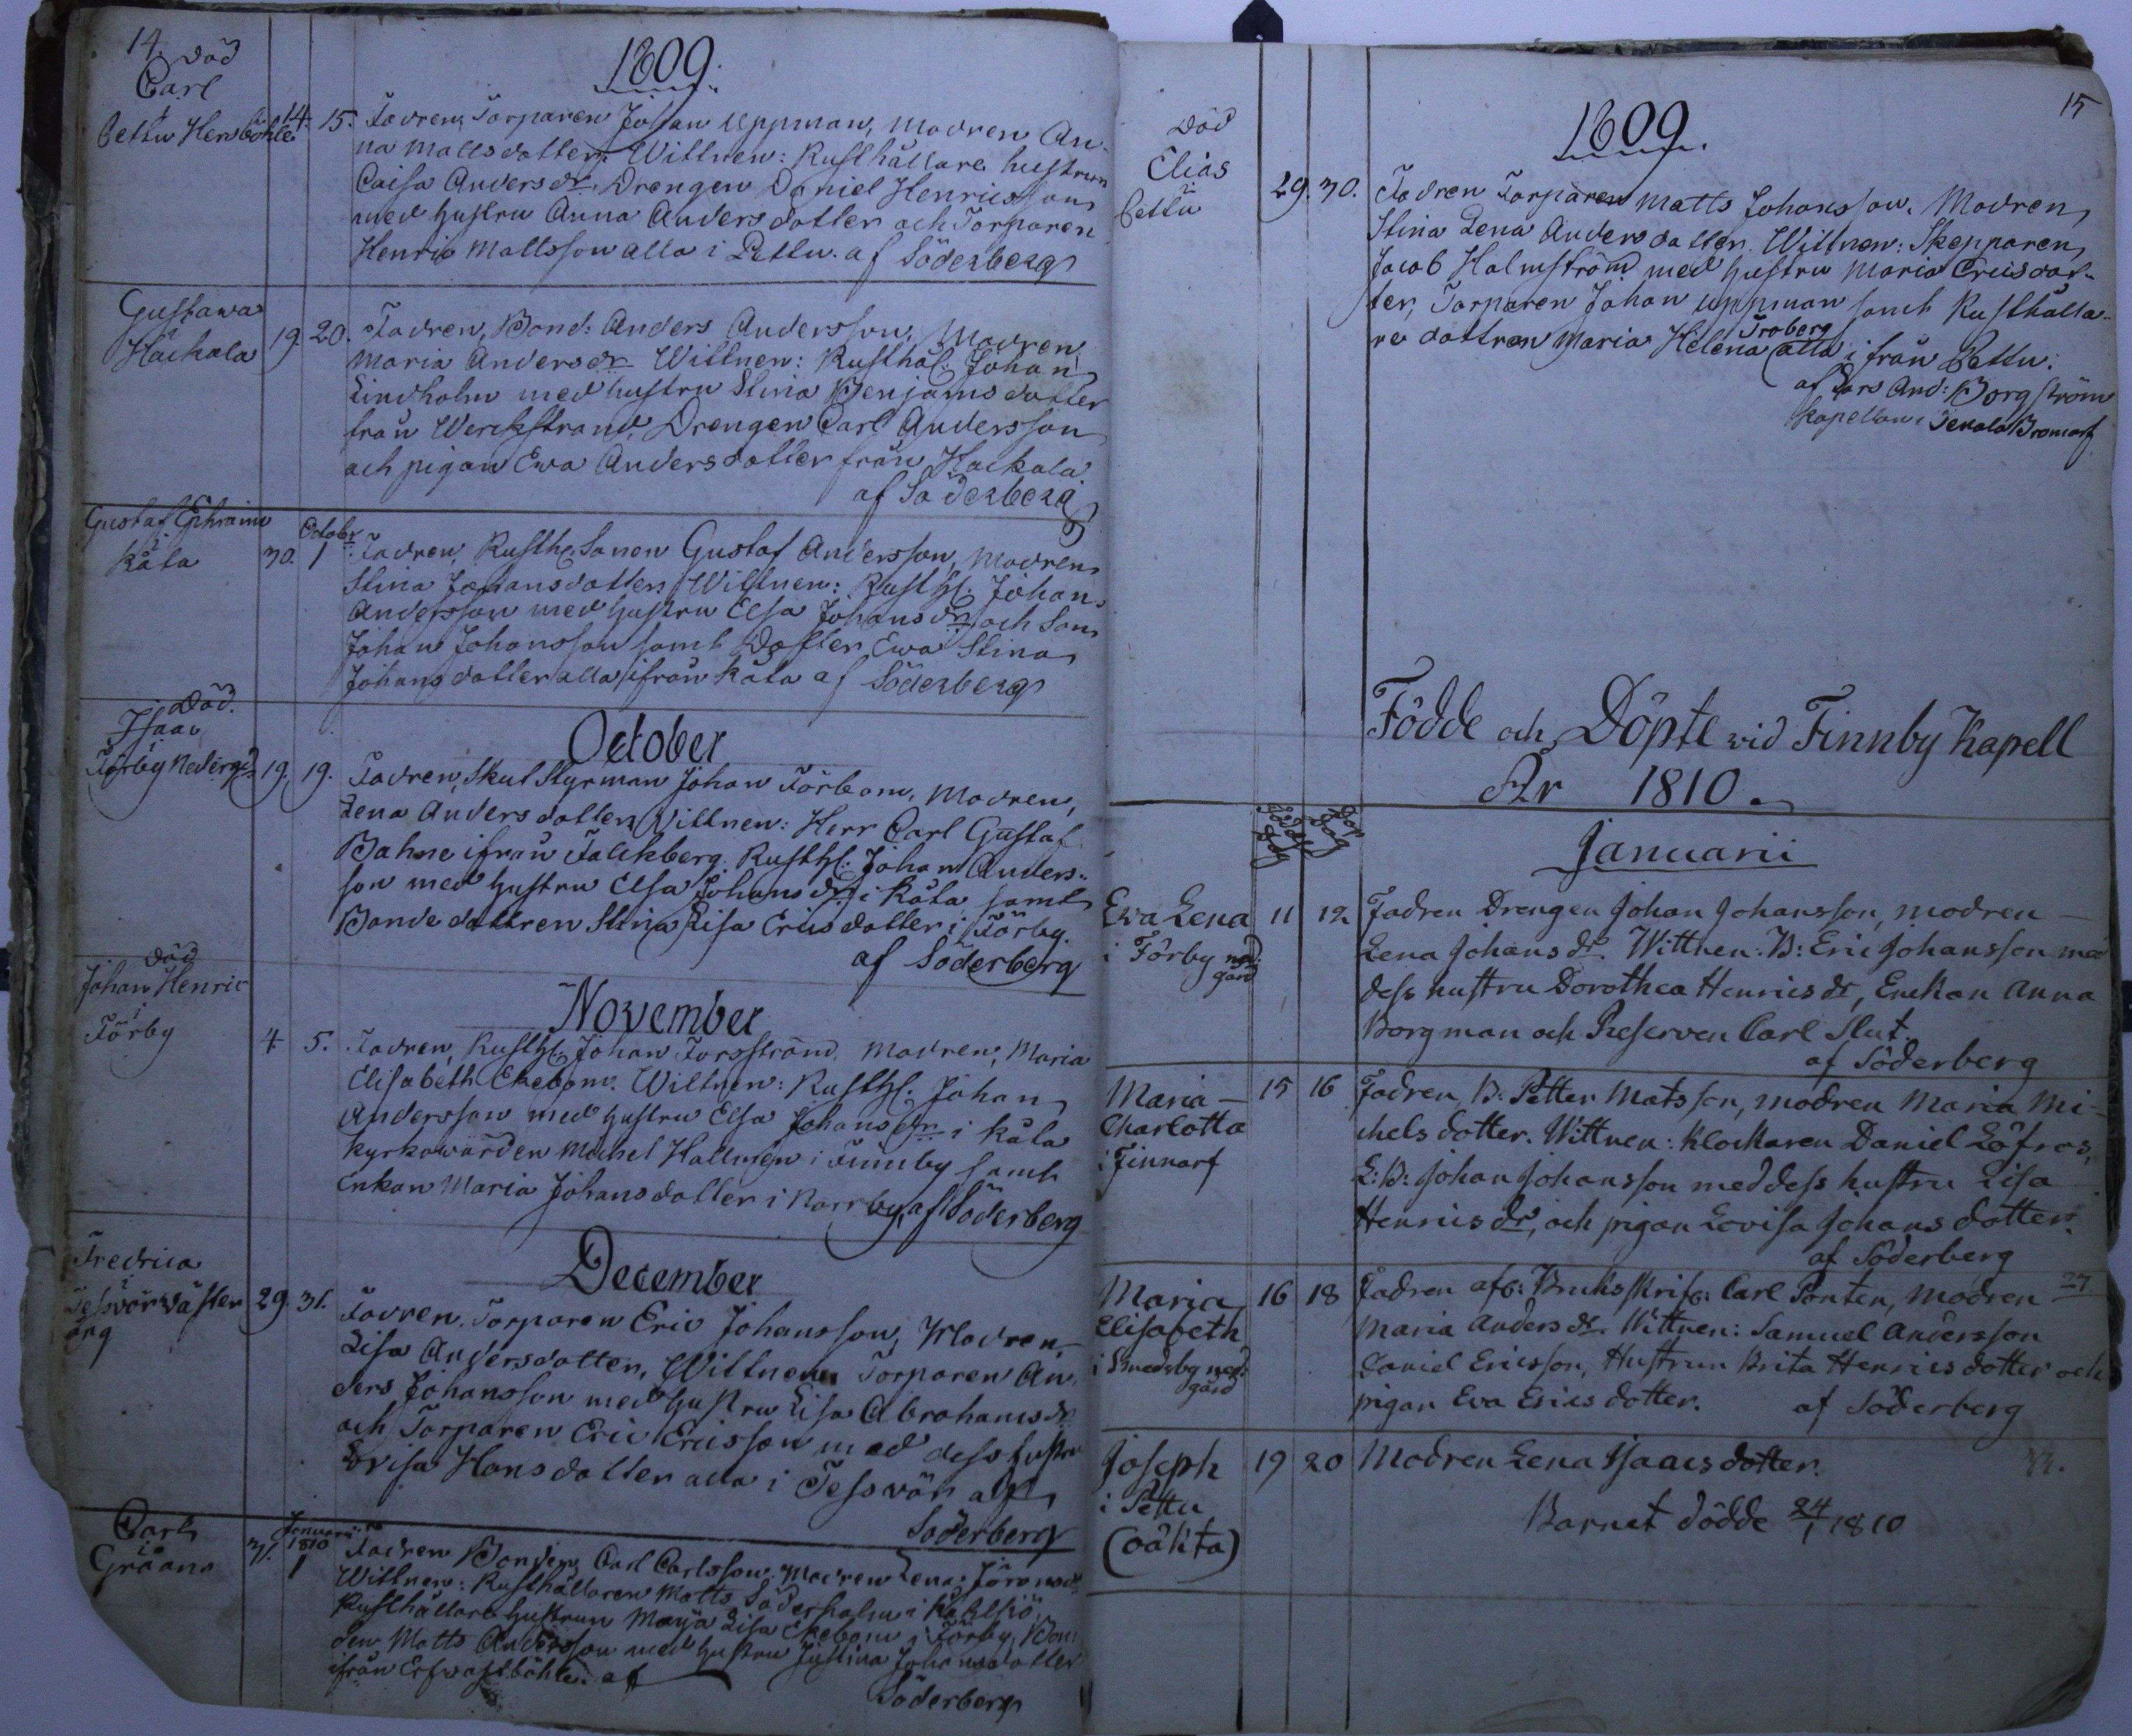 14.
1809.
död
Carl
i
Pettu Hersböhle
14. 15. Fadren, Torparen Johan Uppman, Modren An-
na Mattsdotter. Wittnen: Rusthållare hustrun
Caisa Andersdr. Drengen Daniel Henricsson
med hustru Anna Andersdotter och Torparen
Henric Mattsson alla i Pettu. af Söderberg
Gustawa
i
Häckala
19. 20. Fadren, Bond: Anders Andersson, Modren
Maria Andersdr Wittnen: Rusthål: Johan
Lindholm med hustru Stina Benjamsdotter
från Werckstrand, Drengen Carl Andersson
och pigan Ewa Andersdotter från Hackala.
af Söderberg
Gustaf Ephraim
i
Kåta
October
30. 1 Fadren, Rusth. Sonen Gustaf Andersson, Modren
Stina Johansdotter Wittnen: Rusthl. Johan
Andersson med hustru Elsa Johansdr och Son
Johan Johansson samt Dotter Ewa Stina
Johansdotter alla ifrån Kåta af Söderberg
October
död.
Isaac
i
Förby Nedergd
19. 19. Fadren, Skut Styrman Johan Förbom, Modren,
Lena Andersdotter Wittnen: Herr Carl Gustaf
Bahne ifrån Falckberg. Rusthl: Johan Anders-
son med hustru Elsa Johansdr i Kåta samt
Bonde dottren Stina Lisa Ericsdotter i Förby.
af Söderberg
November
död
Johan Henric
i
Förby
4. 5. Fadren, Rusthl: Johan Forsström Modren, Maria
Elisabeth Ekebom. Wittnen: Rusthl. Johan
Andersson med hustru Elsa Johansdr i Kåta
Kyrkowärden Michel Hallmen i Finnby samt
Enkan Maria Johansdotter i Norrby, af Söderberg
December
Fredrica
i
Tessvär Väster
äng
29. 31. Fadren, Torparen Eric Johansson, Modren,
Lisa Andersdotter, Wittnen Torparen An-
ders Johansson med hustru Lisa Abrahamsdr
och Torparen Eric Ericsson med dess hustru
Lovisa Hansdotter alla i Tessvär af
Söderberg
Carl
i
Gråana
Januari
1810
31. 1 Fadren Bonden Carl Carlsson Modren Lena Jöransdr
Wittnen: Rusthållaren Matts Söderholm i
Rusthållare hustrun Maija Lisa Ekebom i Förby, Bon-
den Matts Andersson med hustru Justina Johansdotter
ifrån Erfwastböhle. af
Söderberg
15
1809.
död
Elias
i
Pettu
29. 30. Fadren Torparen Matts Johansson. Modren,
Stina Lena Andersdotter. Wittnen: Skepparen,
Jacob Holmström med hustru Maria Ericsdot-
ter, Torparen Johan Uppman samt Rusthålla-
re dottren Maria Helena Troberg alla i från Pettu:
af Lars And: Borgström
Kapellan i Tenala Bromarf
Födde och Döpte vid Finnby Kapell
År 1810.
Januarii
Eva Lena
i Förby ned:
gård
11 12. Fadren Drengen Johan Johansson, modren
Lena Johansdr. Wittnen: B: Eric Johansson med
dess hustru Dorothea Henricsdr, Enckan Anna
Borgman och Reserven Carl Slut.
af Söderberg
Maria
Charlotta
i Finnarf
15 16 Fadren, B: Petter Matsson, modren Maria Mi-
chels dotter. Wittnen: Klockaren Daniel Löfros,
L:B: Johan Johansson med dess hustru Lisa
Henricsdr, och pigan Lovisa Johans dotter.
af Söderberg
Maria
Elisabeth
i Smedsby ned:
gård
16 18 Fadren afs: Bruks Skrif: Carl Ponten, Modren 27
Maria Andersdr. Wittnen: Samuel Andersson
Daniel Ericsson, Hustrun Brita Henrics dotter och
pigan Eva Erics dotter. af Söderberg
Joseph
i Pettu
(oäkta)
19 20 Modren Lena Isaacs dotter.
Barnet dödde 24/1 1810